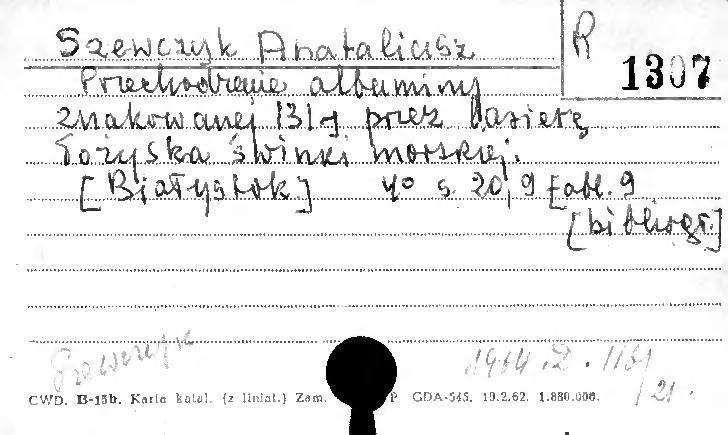 Szewczyk Anataliusz
R
1307
Przechodzenie albuminy
znakowanej 131-J przez barierę
łożyska świnki morskiej.
[Białystok] 4° s. 20, 9 tabl. 9
[bibliogr.]
Szewczyk
1964.Z.113/
21.
CWD. B-15b. Karta katal. (z liniat.) Zam. P. GDA-545. 10.2.62. 1.880.000.